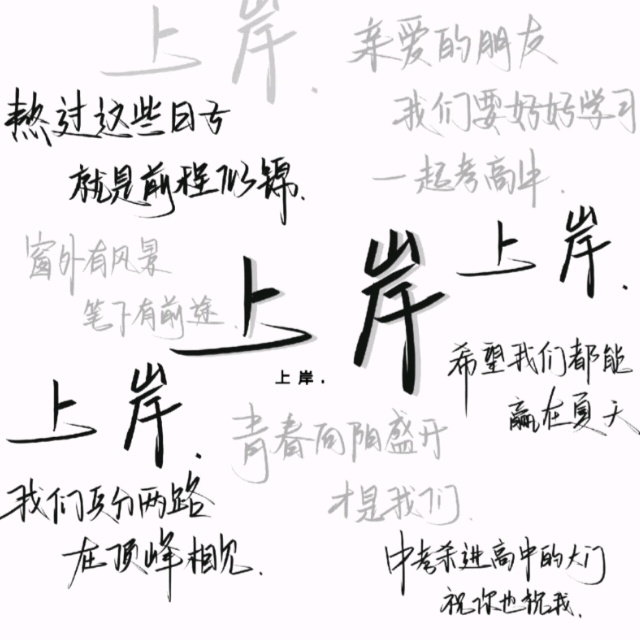 上岸.
亲爱的朋友
我们要好好学习
一起考高中.
熬过这些日子
就是前程似锦.
窗外有风景
笔下有前途.
上岸
上岸.
上岸.
希望我们都能
赢在夏天
上岸.
青春向阳盛开
才是我们.
我们兵分两路
在顶峰相见.
中考杀进高中的大门
祝你也祝我.